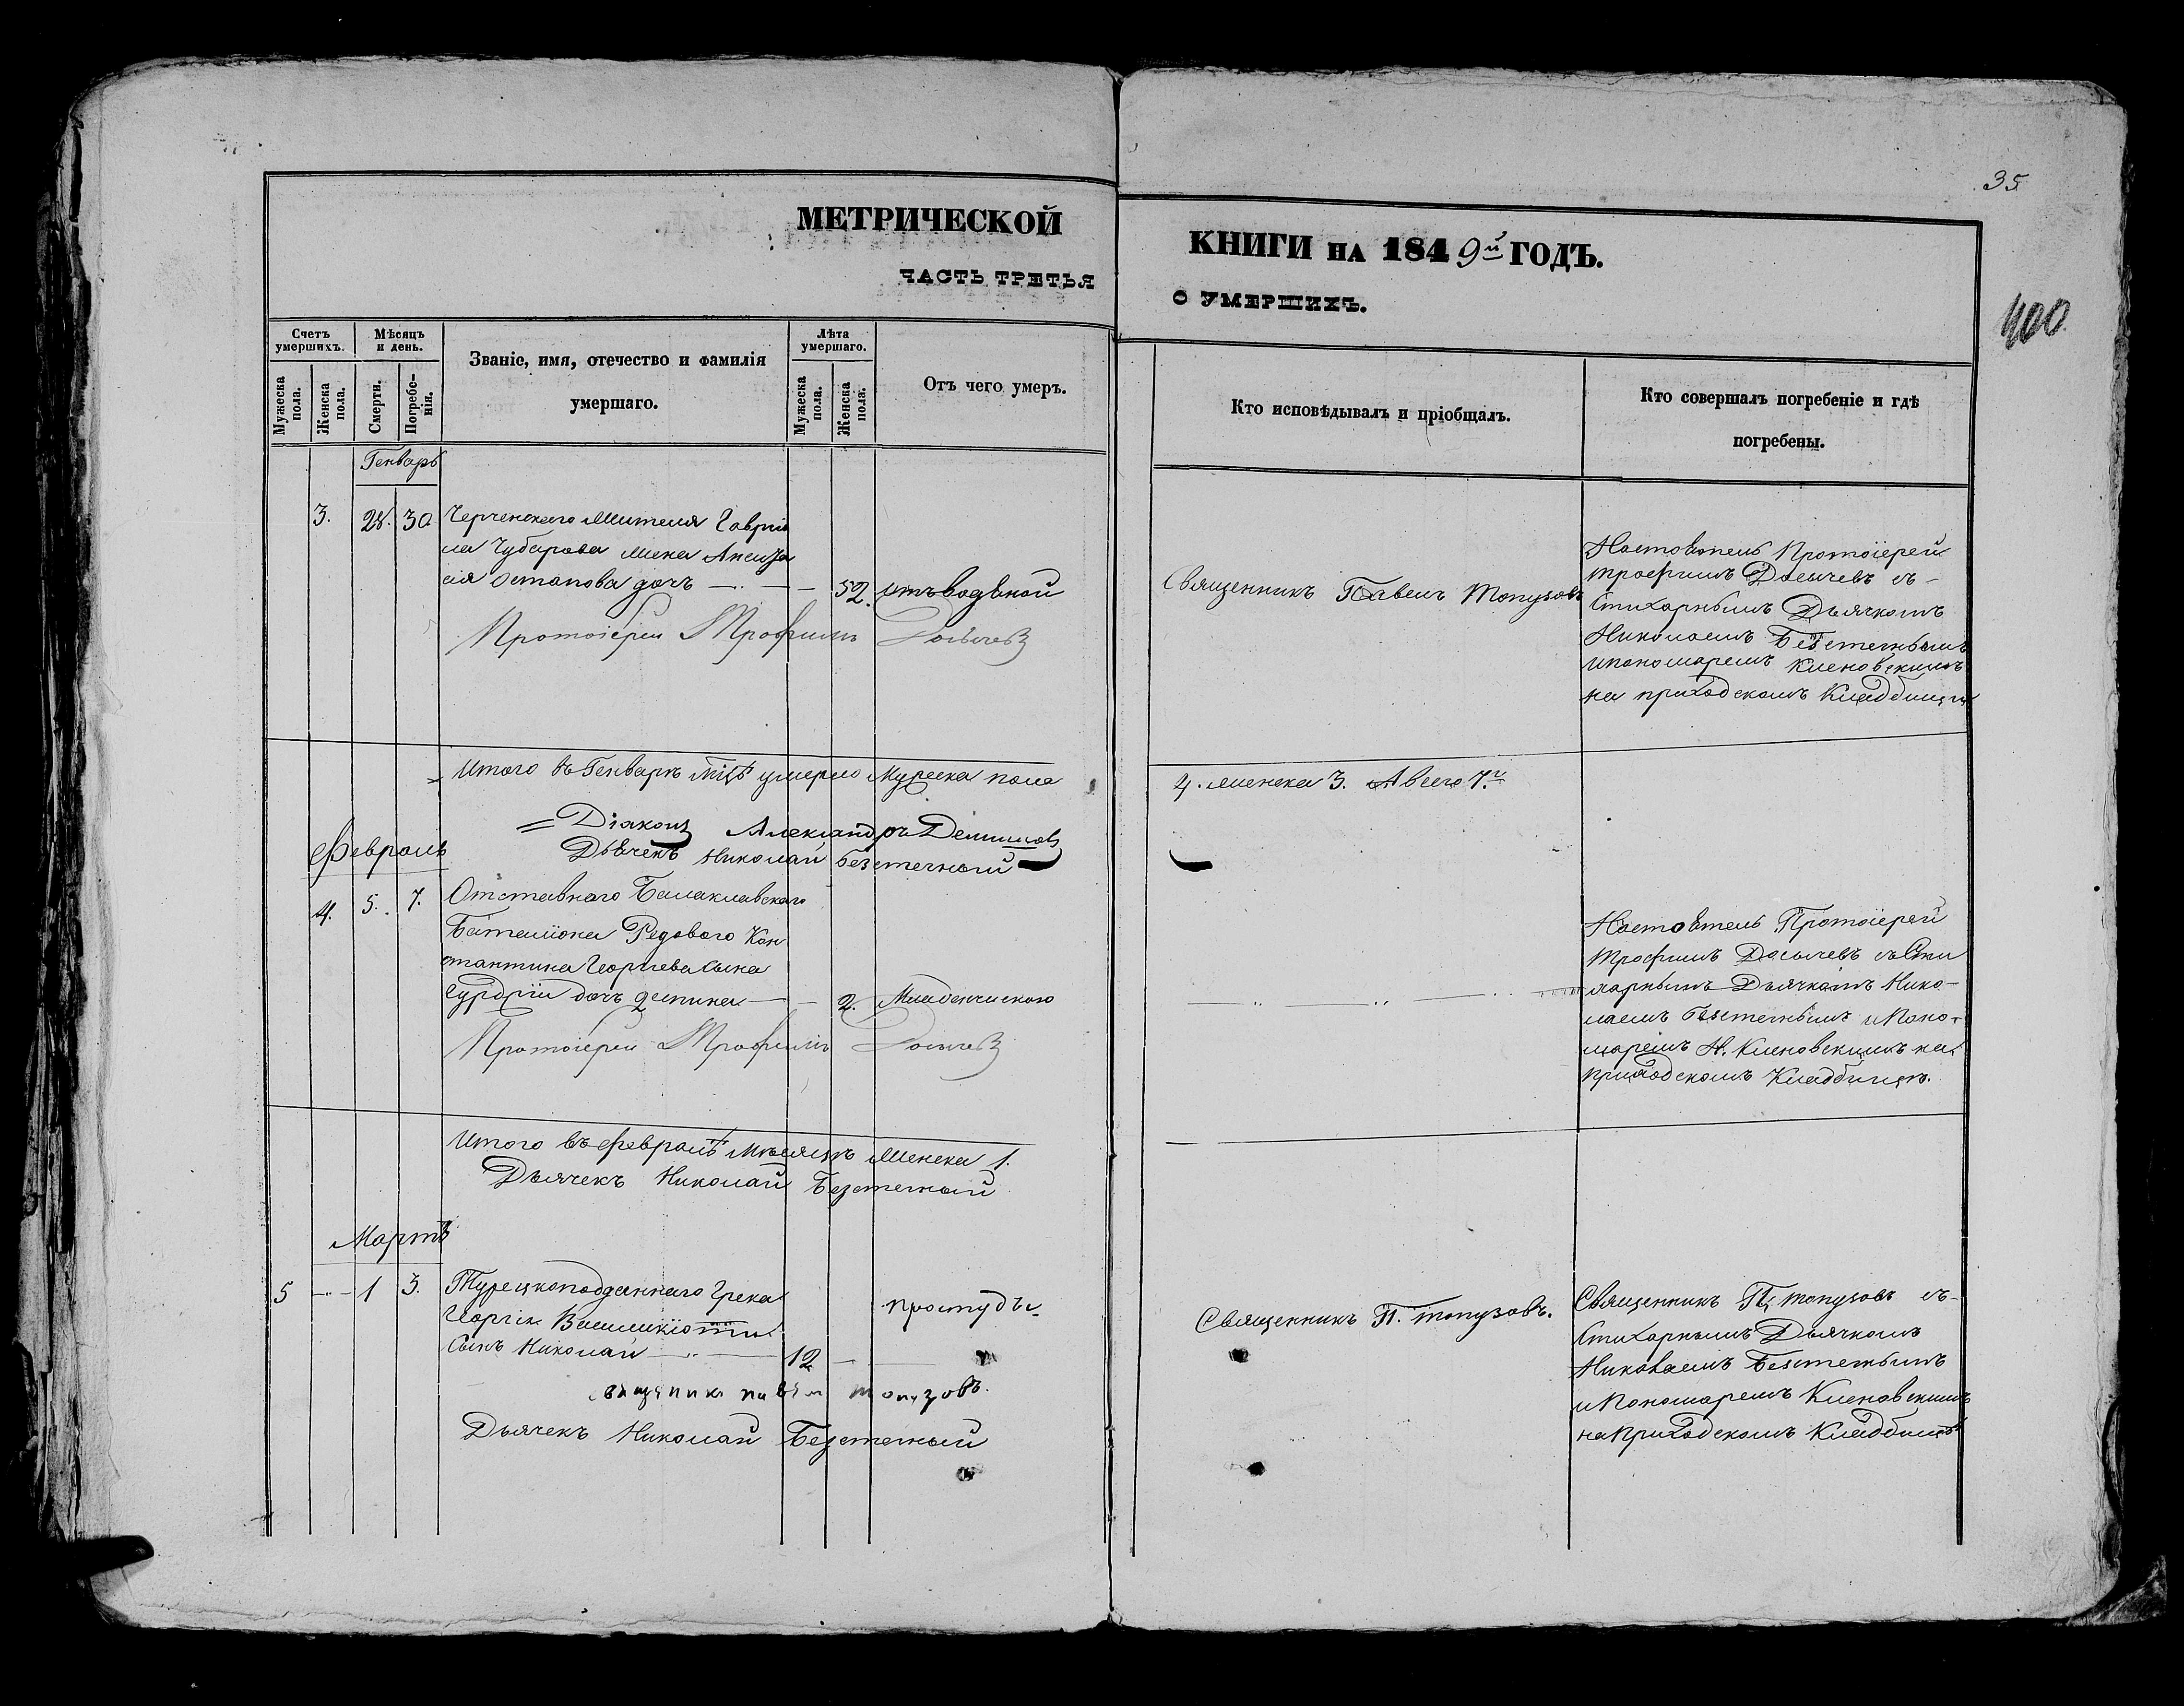 35
400
МЕТРИЧЕСКОЙ
КНИГИ НА 1849й ГОДЪ.
ЧАСТЬ ТРЕТЬЯ
О УМЕРШИХЪ.
Счетъ умершихъ.
Мѣсяцъ и день.
Званіе, имя, отечество и фамилія
умершаго.
Лѣта умершаго.
Отъ чего умеръ.
Кто исповѣдывалъ и пріобщалъ.
Кто совершалъ погребеніе и гдѣ
погребены.
Мужеска пола.
Женска пола.
Смерти.
Погребе-нія.
Мужеска пола.
Женска пола.
Генварь
3. 28. 30 Керченскаго Жителя Гаврі
ла Чубарова жена
сія Остапова дочь — 52. отъ водяной
Протоіерей Трофимъ
Священникъ Павелъ Топузовъ
Настоятель Протоіерей
Трофимъ съ
Стихарнымъ Дьячкомъ
Николаемъ Безстечнымъ
и пономаремъ Кленовскимъ
на приходскомъ Кладбищѣ
Итого въ Генварѣ мцѣ умерло Мужеска пола
4. женска 3. А всего 7.
Діаконъ Александръ
Дьячекъ Николай Безстечный
Февраль
4. 5. 7. Отставного Балаклавскаго
Баталіона Редового Кон
стантина Георгіева Сына
дочь — 2. Младенческою
Протоіерей Трофимъ
Настоятель Протоіерей
Трофимъ съ Сти
харнымъ Дьячкомъ Нико-
лаемъ Безстечнымъ и Поно-
маремъ Н. Кленовскимъ на
приходскомъ Кладбищѣ.
Итого въ Февралѣ Мѣсяцѣ Женска 1.
Дьячекъ Николай Безстечный
Мартъ
5 — 1 3. Турецкоподданнаго Грека
Георгія
Сынъ Николай — 12 —
простуды
Священникъ П. Топузовъ.
Священникъ П. Топузовъ съ
Стихарнымъ Дьячкомъ
Николаемъ Безстечнымъ
и Пономаремъ Кленовскимъ
на Приходскомъ Кладбищѣ
священикъ павелъ топузовъ.
Дьячекъ Николай Безстечный